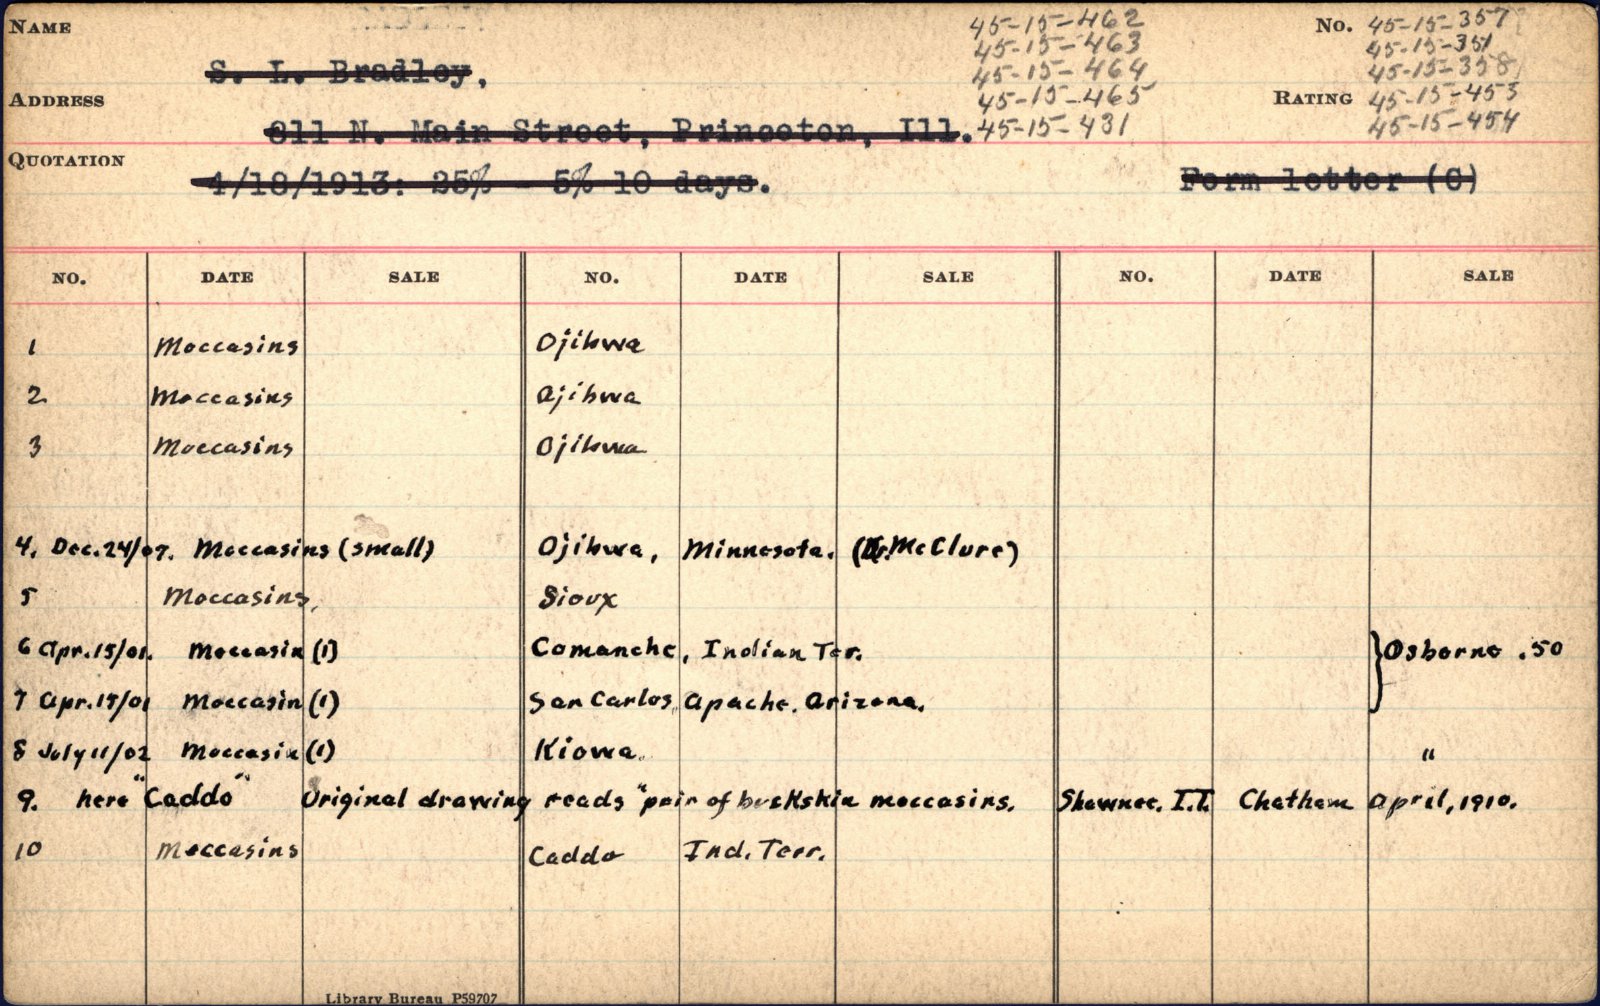 NAME
S. L. Bradley,
45-15-462
45-15-463
45-15-464
45-15-465
45-15-431
No.
45-15-357
45-15-351
45-15-358
45-15-453
45-15-454
ADDRESS
RATING
811 N. Main Street, Princeton, Ill.
QUOTATION
4/18/1913: 25% - 5% 10 days.
Form letter (C)
NO. DATE SALE NO. DATE SALE NO. DATE SALE
1 Moccasins Ojibwa
2 Moccasins Ojibwa
3 Moccasins Ojibwa
4. Dec. 24/07. Moccasins (small) Ojibwa, Minnesota. (Dr. McClure)
5 Moccasins, Sioux
6 Apr. 15/01. Moccasin (1) Comanche, Indian Ter. } Osborne .50
7 Apr. 15/01 Moccasin (1) San Carlos Apache. Arizona.
8 July 11/02 Moccasin (1) Kiowa. "
9. here "Caddo" Original drawing reads "pair of buckskin moccasins. Shawnee. I.T. Chatham April, 1910.
10 Moccasins Caddo Ind. Terr.
Library Bureau P59707